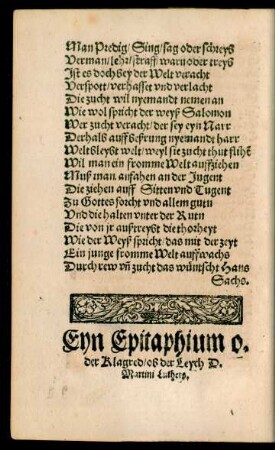 Man Predig/ Sing/ sag oder schreyb
Verman/ lehr/ straff/ warn oder treyb
Ist es doch bey der Welt veracht
Verspott/ verhasset vnd verlacht
Die zucht wil nyemandt nemen an
Wie wol spricht der weyß Salomon
Wer zucht veracht/ der sey eyn Narr
Derhalb auff besserung nyemandt harr
Welt bleybt welt/ weyl sie zucht thut flihẽ
Wil man ein fromme Welt auffziehen
Muß man anfahen an der Jugent
Die ziehen auff Sitten vnd Tugent
Zu Gottes forcht vnd allem gutn
Vnd die halten vnter der Rutn
Die von jr außtreybt die thorheyt
Wie der Weyß spricht/ das mit der zeyt
Ein junge fromme Welt auffwachs
Durch rew vñ zucht das wüntscht Hans
Sachs.
Eyn Epitaphium o-
der Klagred/ ob der Leych D.
Martini Luthers.